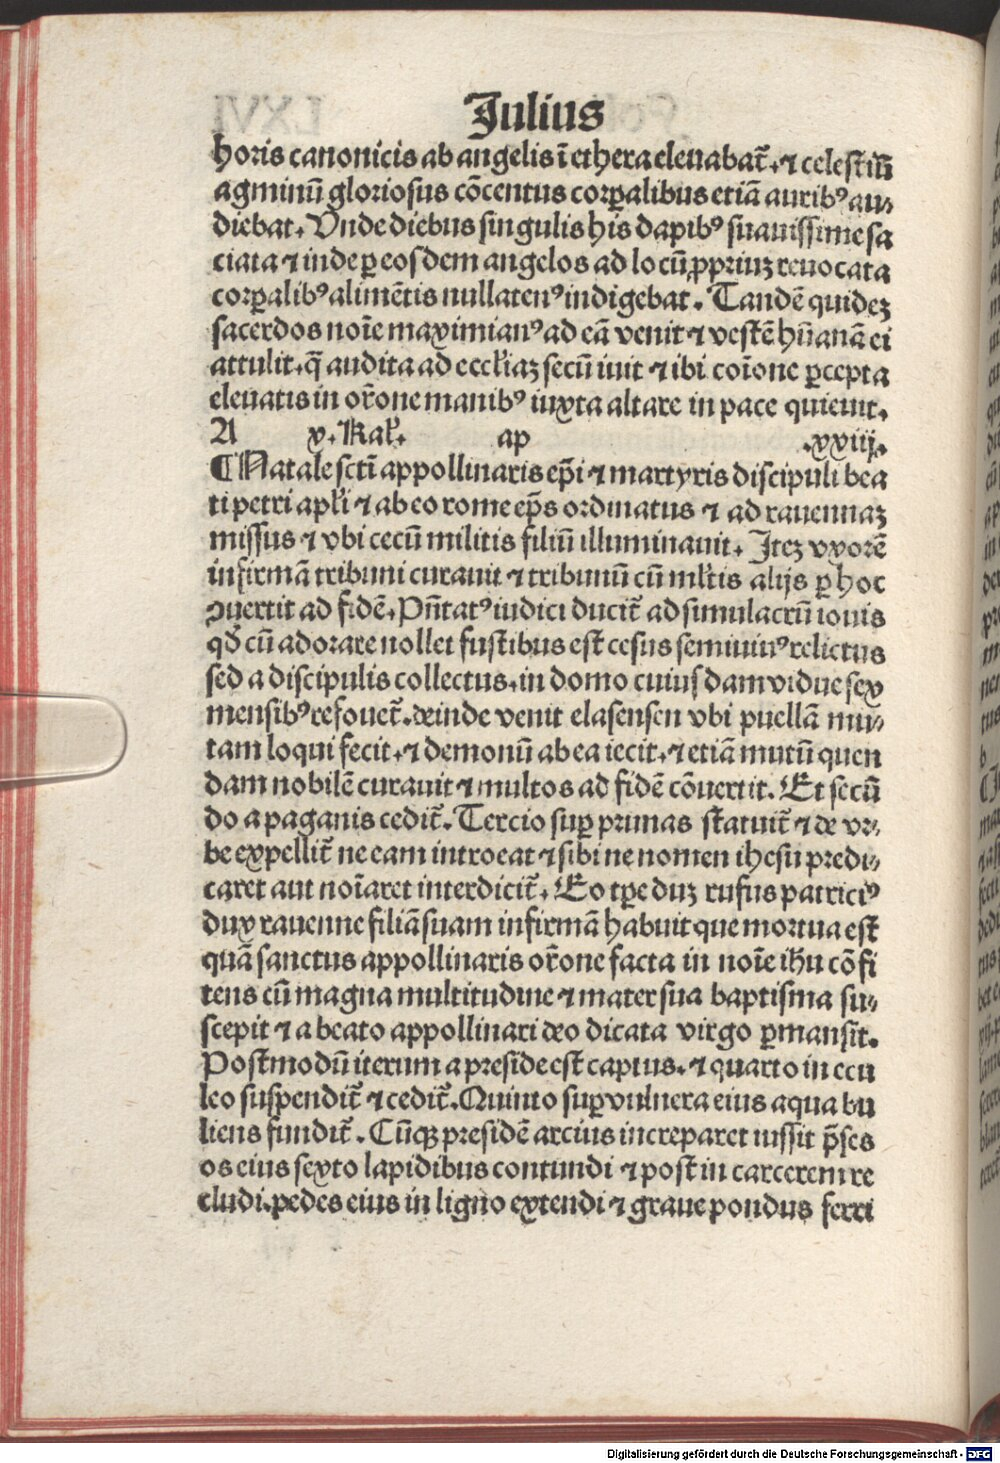 Julius
horis canonicis ab angelis ī ethera eleuabat̄. ⁊ celestiū
agminū gloriosus cōcentus corꝑalibus etiā auribꝰ au⸗
diebat. Vnde diebus singulis his dapibꝰ suauissime sa
ciata ⁊ inde ꝑ eosdem angelos ad locū ꝓpriuꝫ reuocata
corꝑalibꝰ alimētis nullatenꝰ indigebat. Tandē quideꝫ
sacerdos noīe maximianꝰ ad eā venit ⁊ vestē hūanā ei
attulit. q̄ audita ad eccłiaꝫ secū iuit ⁊ ibi coīone ꝑcepta
eleuatis in or̄one manibꝰ iuxta altare in pace quieuit.
A x. Kał. ap .xxiij.
¶ Natale sctī appollinaris ep̄i ⁊ martyris discipuli bea
ti petri apłi ⁊ ab eo rome ep̄s ordinatus ⁊ ad rauennaꝫ
missus ⁊ vbi cecū militis filiū illuminauit. Iteꝫ vxorē
infirmā tribuni curauit ⁊ tribunū cū młtis alijs ꝑ hoc
ꝯuertit ad fidē. Pn̄tatꝰ iudici ducit̄ ad simulacrū iouis
qd̄ cū adorare nollet fustibus est cesus semiuiuꝰ relictus
sed a discipulis collectus. in domo cuiusdam vidue sex
mensibꝰ refouet̄. deinde venit elasensen vbi puellā mu⸗
tam loqui fecit. ⁊ demonū ab ea iecit. ⁊ etiā mutū quen
dam nobilē curauit ⁊ multos ad fidē cōuertit. Et secū
do a paganis cedit̄. Tercio suꝑ prunas statuit̄ ⁊ de vr⸗
be expellit̄ ne eam introeat ⁊ sibi ne nomen ihesu predi⸗
caret aut noīaret interdicit̄. Eo tꝑe duꝫ rufus patriciꝰ
dux rauenne filiā suam infirmā habuit que mortua est
quā sanctus appollinaris or̄one facta in noīe ihū cōfi
tens cū magna multitudine ⁊ mater sua baptisma su⸗
scepit ⁊ a beato appollinari deo dicata virgo ꝑmansit.
Postmodū iterum a preside est captus. ⁊ quarto in ecu
leo suspendit̄ ⁊ cedit̄. Quinto suꝑ vulnera eius aqua bu
liens fundit̄. Cūqꝫ presidē arcius increparet iussit p̄ses
os eius sexto lapidibus contundi ⁊ post in carcerem re
cludi. pedes eius in ligno extendi ⁊ graue pondus ferri
Digitalisierung gefördert durch die Deutsche Forschungsgemeinschaft - DFG